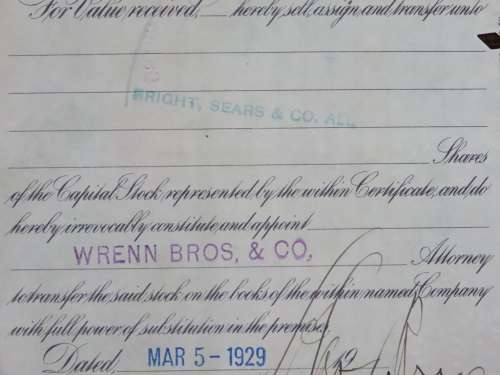 For Value received, hereby sell, assign and transfer unto
BRIGHT, SEARS & CO. ALL
Shares
of the Capital Stock represented by the within Certificate, and do
hereby irrevocably constitute and appoint
WRENN BROS, & CO, Attorney
to transfer the said stock on the books of the within named Company
with full power of substitution in the premises.
Dated, MAR 5-1929